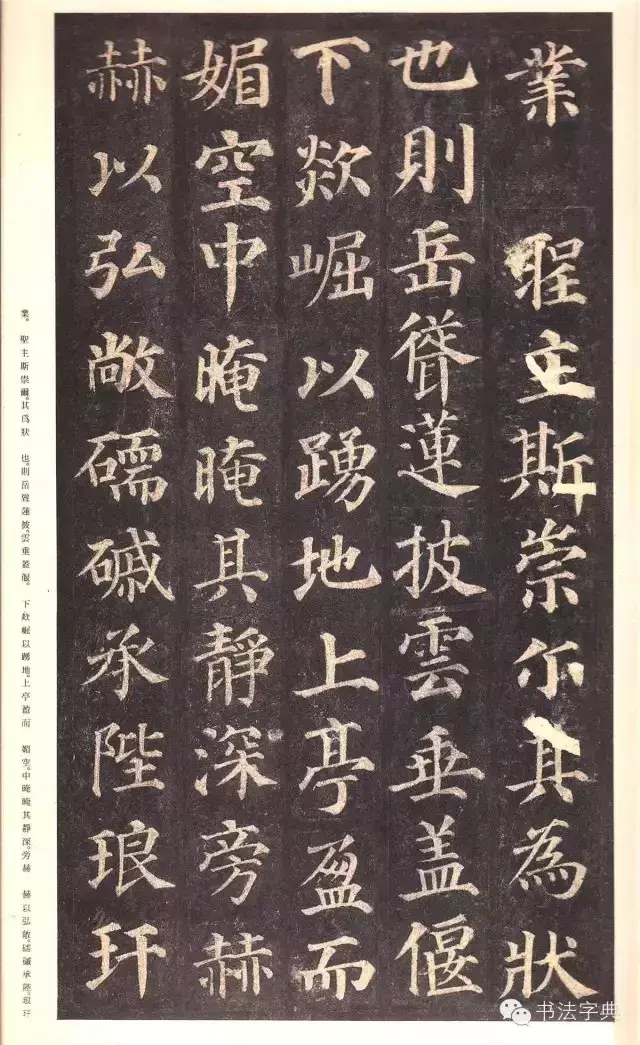 業　聖主斯崇尔其為狀
也則岳聳蓮披雲垂盖偃
下欻崛以踴地上亭盈而
媚空中晻晻其靜深旁赫
赫以弘敞礝磩承陛琅玕
業。聖主斯崇爾。其爲狀　也。則岳聳蓮披。雲垂蓋偃。　下欻崛以踴地。上亭盈而　媚空。中晻晻其靜深。旁赫　赫以弘敞。礝磩承陛。琅玕
书法字典